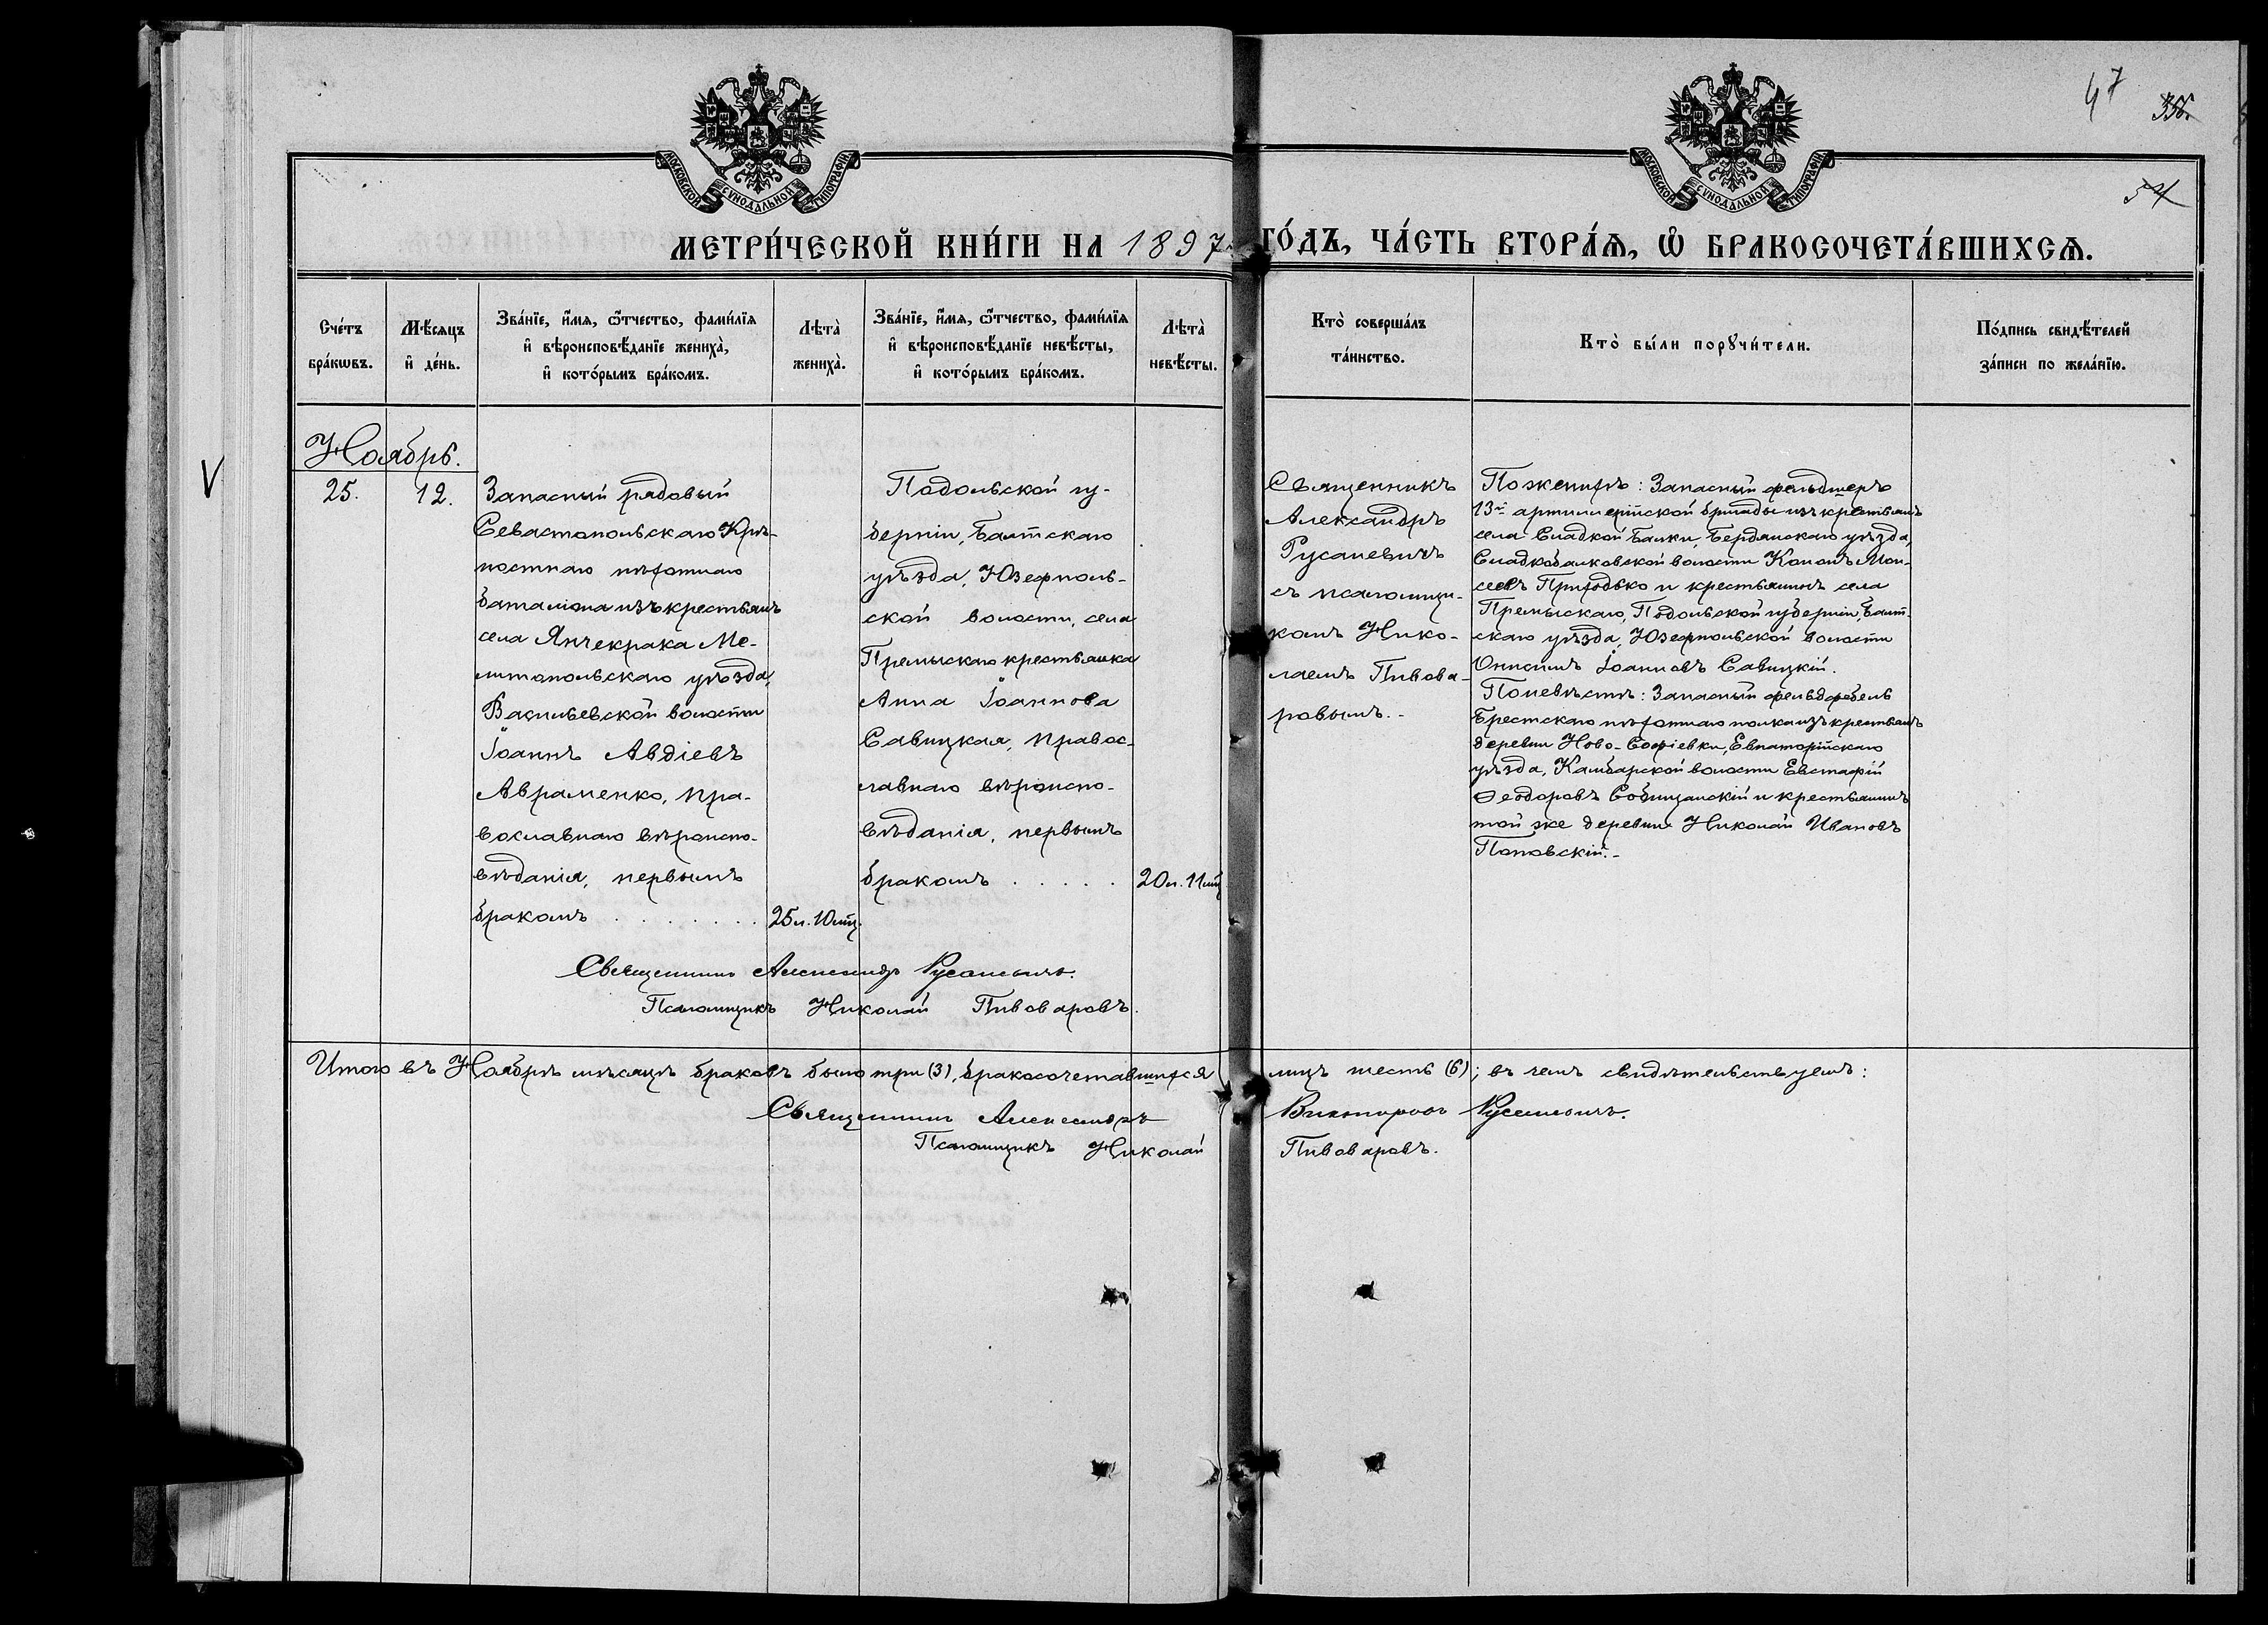 47 356.
54
МОСКОВСКОЙ СѴНОДАЛЬНОЙ ТИПОГРАФІИ
МОСКОВСКОЙ СѴНОДАЛЬНОЙ ТИПОГРАФІИ
МЕТРИ́ЧЕСКОЙ КНИ́ГИ НА 1897 ГО́ДЪ, ЧА́СТЬ ВТОРА́Ѧ, Ѿ БРАКОСОЧЕТА́ВШИХСѦ.
Сче́тъ
бра́кѡвъ.
Мѣ́сяцъ
и҆ де́нь.
Зва́нїе, и҆́мя, ѻ҆́тчество, фами́лїя
и҆ вѣроисповѣ́данїе жениха̀,
и҆ кото́рымъ бра́комъ.
Лѣта̀
жениха̀.
Зва́нїе, и҆́мя, ѻ҆́тчество, фами́лїя
и҆ вѣроисповѣ́данїе невѣ́сты,
и҆ кото́рымъ бра́комъ.
Лѣта̀
невѣ́сты.
Кто̀ соверша́лъ
та́инство.
Кто̀ бы́ли порꙋчи́тели.
По́дпись свидѣ́телей
за́писи по жела́нїю.
Ноябрь.
V
25.
12.
Запасный рядовый
Севастопольскаго Крѣ-
постнаго пѣхотнаго
баталіона изъ крестьянъ
села Янчекрака Ме-
литопольскаго уѣзда,
Васильевской волости
Іоаннъ Авдіевъ
Авраменко, пра-
вославнаго вѣроиспо-
вѣданія, первымъ
бракомъ . . . . . . .
25 л. 10 мц.
Подольской гу-
берніи, Балтскаго
уѣзда, Юзефполь-
ской волости, села
Премыскаго крестьянка
Анна Іоаннова
Савицкая, правос-
лавнаго вѣроиспо-
вѣданія, первымъ
бракомъ . . . . .
20 л. 11 мц.
Священникъ
Александръ
Русаневичъ
съ псаломщи-
комъ Нико-
лаемъ Пивова-
ровымъ. -
По женихѣ: Запасный фельдшеръ
13й артиллерійской бригады изъ крестьянъ
села Сладкой Балки, Бердянскаго уѣзда,
Сладкобалковской волости Кононъ Мои-
сеевъ Приходько и крестьянинъ села
Премыскаго, Подольской губерніи, Балт-
скаго уѣзда, Юзефпольской волости
Онисимъ Іоанновъ Савицкій.
По невѣстѣ: Запасный фельдфебель
Брестскаго пѣхотнаго полка изъ крестьянъ
деревни Ново-Софіевки, Евпаторійскаго
уѣзда, Камбарской волости Евстафій
Ѳеодоровъ Собищанскій и крестьянинъ
той же деревни Николай Ивановъ
Поповскій. -
Священникъ Александръ Русаневичъ.
Псаломщикъ Николай Пивоваровъ.
Итого въ Ноябрѣ мѣсяцѣ браковъ было три (3), бракосочетавшихся лицъ шесть (6); въ чемъ свидѣтельствуемъ:
Священникъ Александръ Викторовъ Русаневичъ.
Псаломщикъ Николай Пивоваровъ.